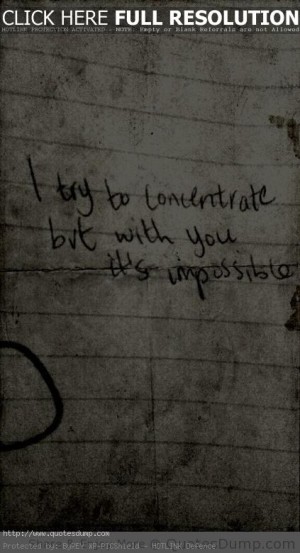 CLICK HERE FULL RESOLUTION
HOTLINK PROTECTION ACTIVATED - NOTE: Empty or Blank Referrals are not Allowed
I try to concentrate
but with you
it's impossible
http://www.quotesdump.com
Protected by: HOTLINK Defence
Dump.com